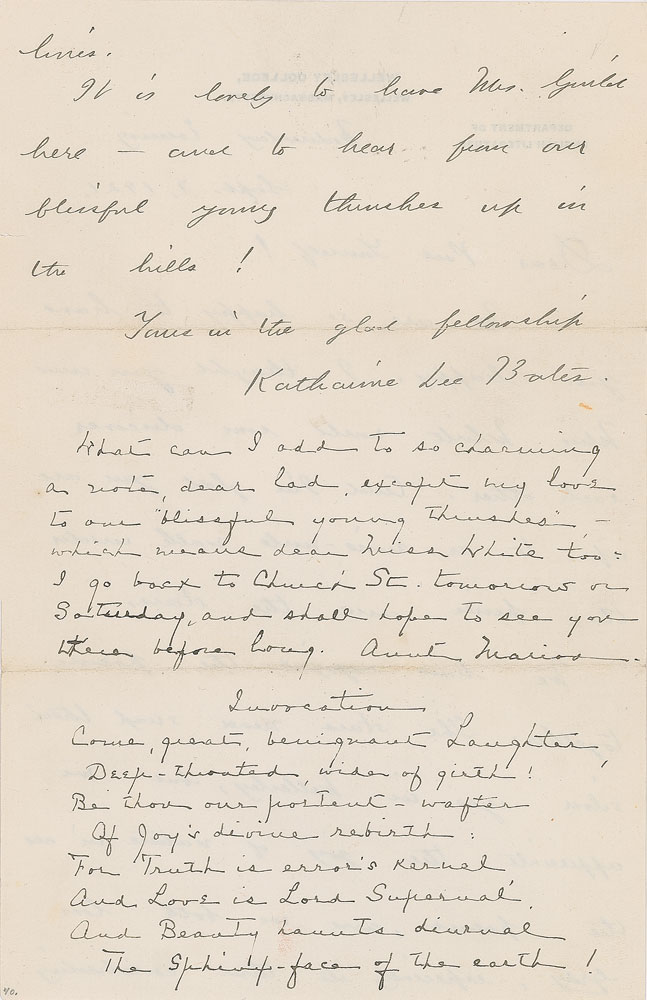 lines.
It is lovely to have Mrs. Guild
here — and to hear from our
blissful young thrushes up in
the hills!
Yours in the glad fellowship
Katharine Lee Bates.
What can I add to so charming
a note, dear lad, except my love
to our "blissful young thrushes" –
which means dear Miss White too:
I go back to Church St. tomorrow or
Saturday, and shall hope to see you
there before long. Aunt Marion.
Invocation
Come, great, benignant Laughter,
Deep-throated, wide of girth!
Be thou our portent-wafter
Of Joy's divine rebirth:
For Truth is error's kernel
And Love is Lord Supernal,
And Beauty haunts diurnal
The Sphinx-face of the earth!
70.